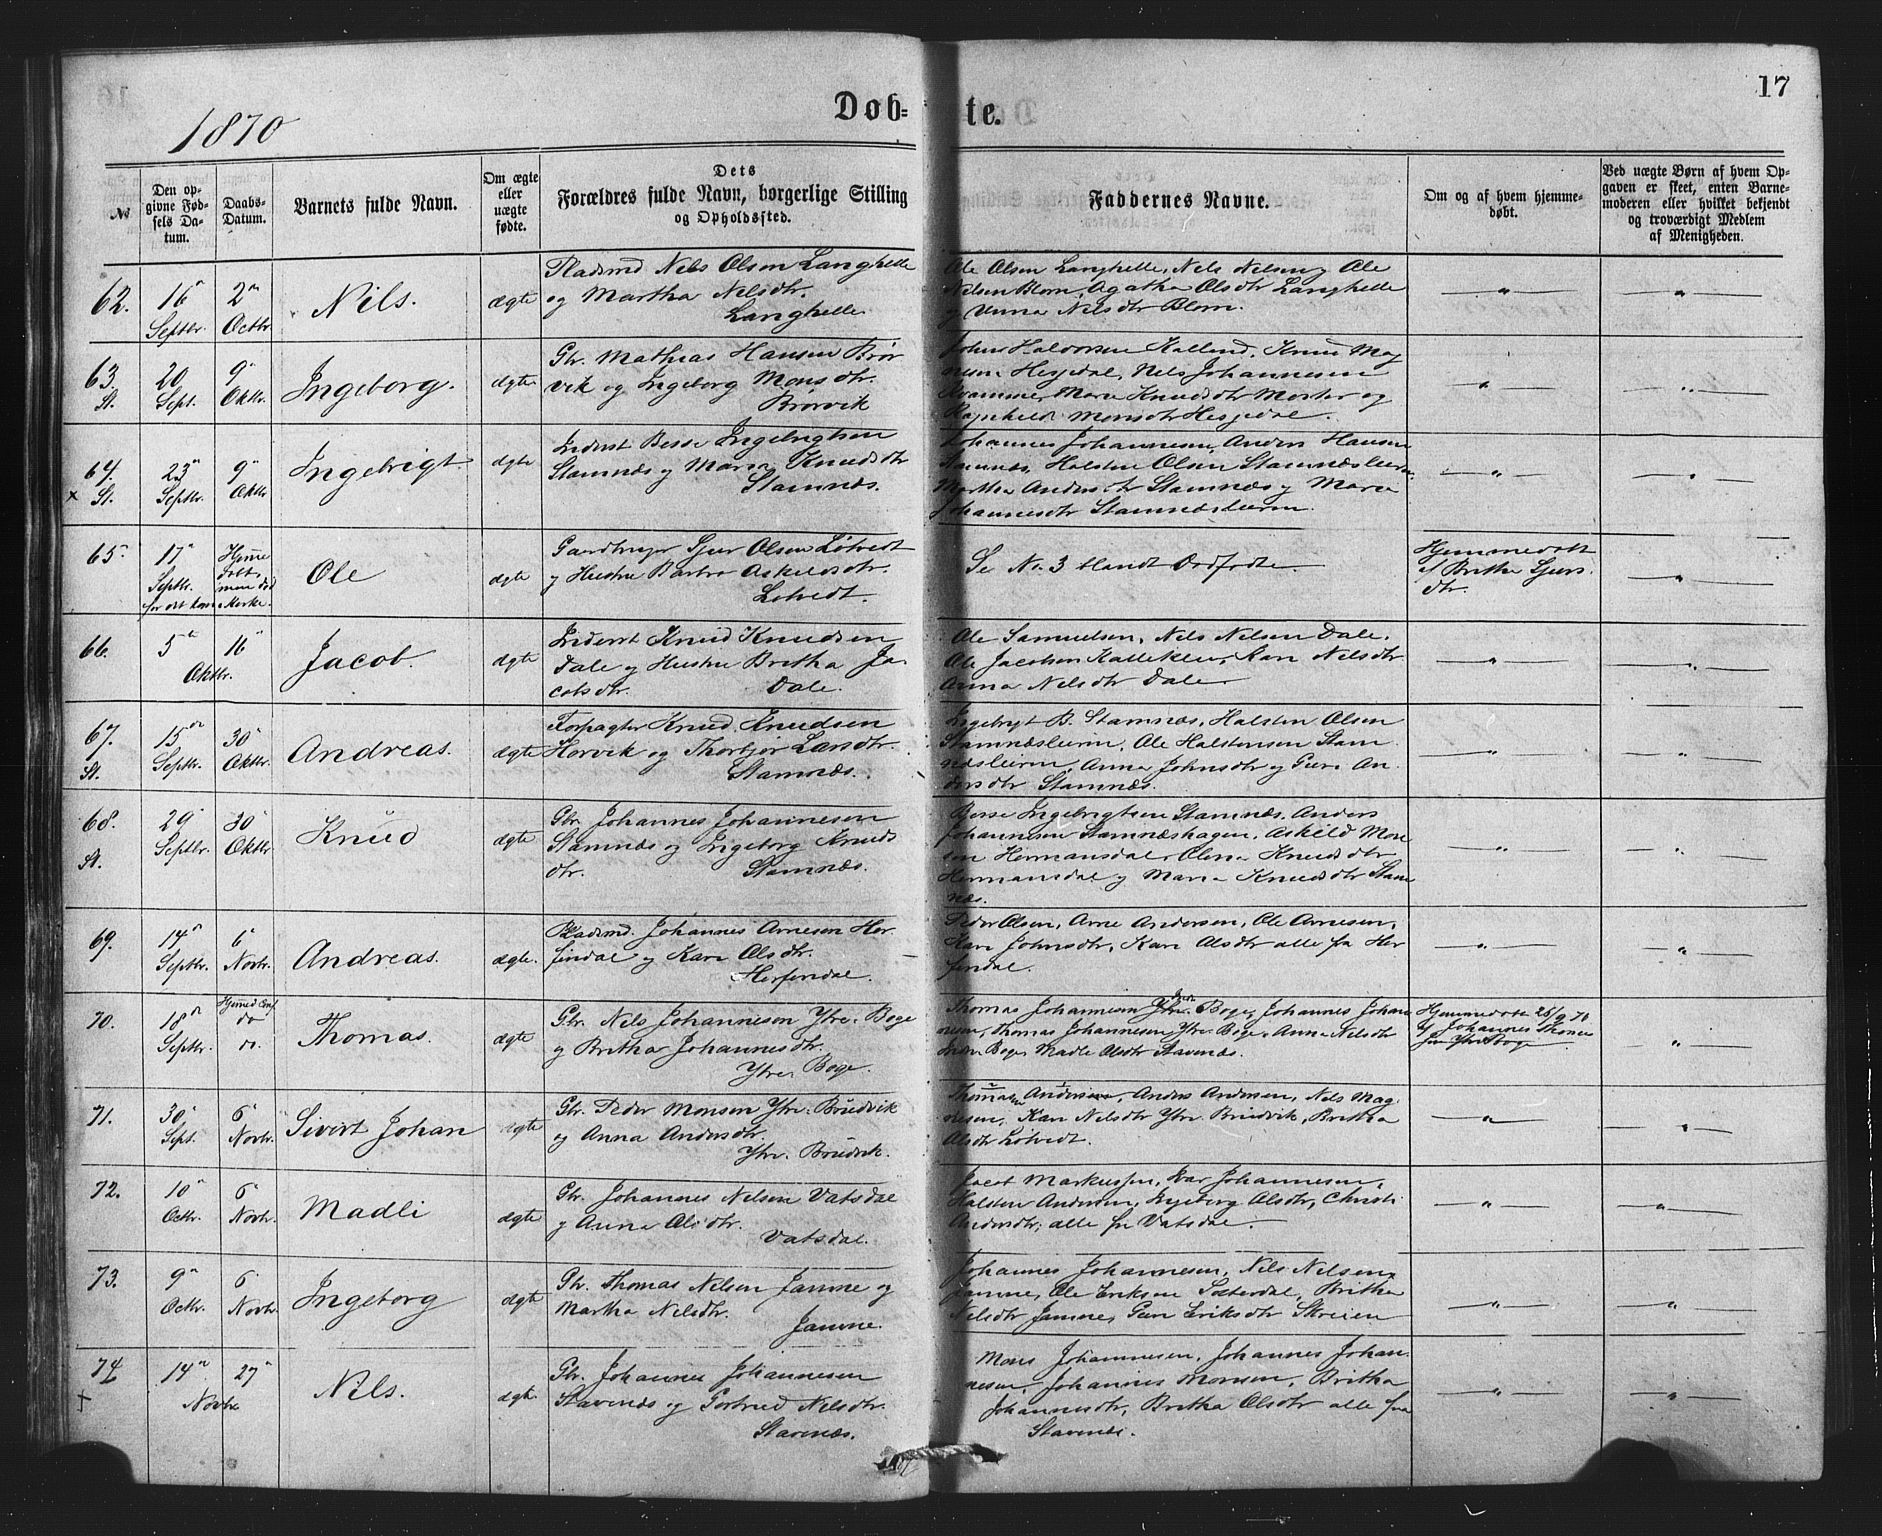 1870
Døb-
te.
17
№
Den opgivne Fødsels Datum.
Daabs-Datum.
Barnets fulde Navn.
Om ægte eller uægte fødte.
Dets
Forældres fulde Navn, borgerlige Stilling
og Opholdssted.
Faddernes Navne.
Om og af hvem hjemmedøbt.
Ved uægte Børn af hvem Opgaven er skeet, enten Barnemoderen eller hvilket bekjendt og troværdigt Medlem af Menigheden.
62. 16 Septbr. 2 Octbr Nils. ægte
Pladsmd Nils Olsen Langhelle
og Martha Nilsdtr.
Langhelle
Ole Olsen Langhelle, Nils Nilsen og Ole
Nilsen Blom, Agatha Olsdtr Langhelle
og Unna Nilsdtr Blom.
63. St. 20 Sept. 9 Oktbr. Ingeborg. ægte
Gbr. Mathias Hansen Brør
vik og Ingeborg Monsdtr.
Brørvik
Johns Halvorsen Kalland, Knud Mag
nesen Hesjedal, Nils Johannesen
Kvamme, Mari Knudsdtr Moster og
Ragnhild Monsdtr Hesjedal.
64. x St. 23 Septbr. 9 Oktbr Ingebrigt ægte
Inderst Besse Ingebrigtsen
Stamnæs og Maria Knudsdtr
Stamnæs.
Johannes Johannesen, Anders Hansen
Stamnæs, Halsten Olsen Stamnæsleiren
Martha Andersdtr Stamnæs og Mari
Johannesdtr Stamnæsleiren.
65. 17 Septbr. Ole ægte
Gaardbruger Sjur Olsen Løtvedt
og Hustru Barbro Askildsdtr.
Løtvedt.
Se No. 3 blandt Dødfødte.
Hjemmedøbt
af Britha Sjurs
dtr.
66. 5 16 Oktbr. Jacob. ægte
Inderst Knud Knudsen
Dale og Hustru Britha Ja-
cobsdtr. Dale.
Ole Samuelsen, Nils Nilsen Dale,
Ole Jacobsen Kalleklev, Kari Nilsdtr
Anna Nilsdtr Dale.
67. St. 15 Septbr. 30 Oktbr. Andreas. ægte
Forpagter Knud Knudsen
Horvik og Thorbjør Larsdtr.
Stamnæs.
Ingebrigt B. Stamnæs, Halsten Olsen
Stamnæsleiren, Ole Halstensen Stam
næsleiren, Anna Johnsdtr og Guri An
dersdtr Stamnæs.
68. St. 29 Septbr. 30 Oktbr Knud ægte
Gbr. Johannes Johannesen
Stamnæs og Ingeborg Knuds
dtr. Stamnæs.
Besse Ingebrigtsen Stamnæs, Anders
Johannesen Stamnæshagen, Askild Mon
sen Hermansdal, Olena Knudsdtr
Hermansdal og Maria Knudsdtr Stam
næs.
69. 14 Septbr. 6 Novbr. Andreas. ægte.
Pladsmd. Johannes Arnesen Her
findal og Kari Olsdtr.
Herfindal.
Peder Olsen, Arne Andersen, Ole Arnesen,
Kari Johnsdtr, Kari Olsdtr alle fra Her
findal.
70. 18 Septbr. Thomas. ægte
Gbr. Nils Johannesen Ytre Boge
og Britha Johannesdtr.
Ytre Boge.
Thomas Johannesen Ytre Boge, Johannes Johan
nesen, Thomas Johannesen Ytre Boge, Anna Nilsdtr
Indre Boge, Madle Olsdtr Stavenæs.
Hjemmedøbt 26/9 70
af Johannes Thomas
sen Ytreboge
71. 30 Sept. 6 Novbr. Sivert Johan ægte
Gbr. Peder Monsen Ytre Brudvik
og Anna Andersdtr.
Ytre Brudvik.
Thomas Andersen, Anders Andersen, Nils Mag
nesen, Kari Nilsdtr Ytre Brudvik, Britha
Olsdtr Løtvedt.
72. 10 Octbr. 6 Novbr. Madli ægte
Gbr. Johannes Nilsen Vatsdal
og Anna Olsdtr.
Vatsdal.
Jacob Markussen, Ivar Johannesen,
Halsten Andersen, Ingeborg Olsdtr, Christi
Andersdtr, alle fra Vatsdal.
73. 9 Octbr. 6 Novbr. Ingeborg ægte
Gbr. Thomas Nilsen Jamne og
Martha Nilsdtr.
Jamne.
Johannes Johannesen, Nils Nilsen
Jamne, Ole Eriksen Sosterdal, Britha
Nilsdtr Jamne, Guri Eriksdtr Skreien
74 14 27 Novbr Nils. ægte
Gbr. Johannes Johannesen
Stavenæs og Gjertrud Nilsdtr.
Stavenæs.
Mons Johannesen, Johannes Johan
nesen, Johannes Monsen, Britha
Johannesdtr, Britha Olsdtr alle fra
Stavenæs.